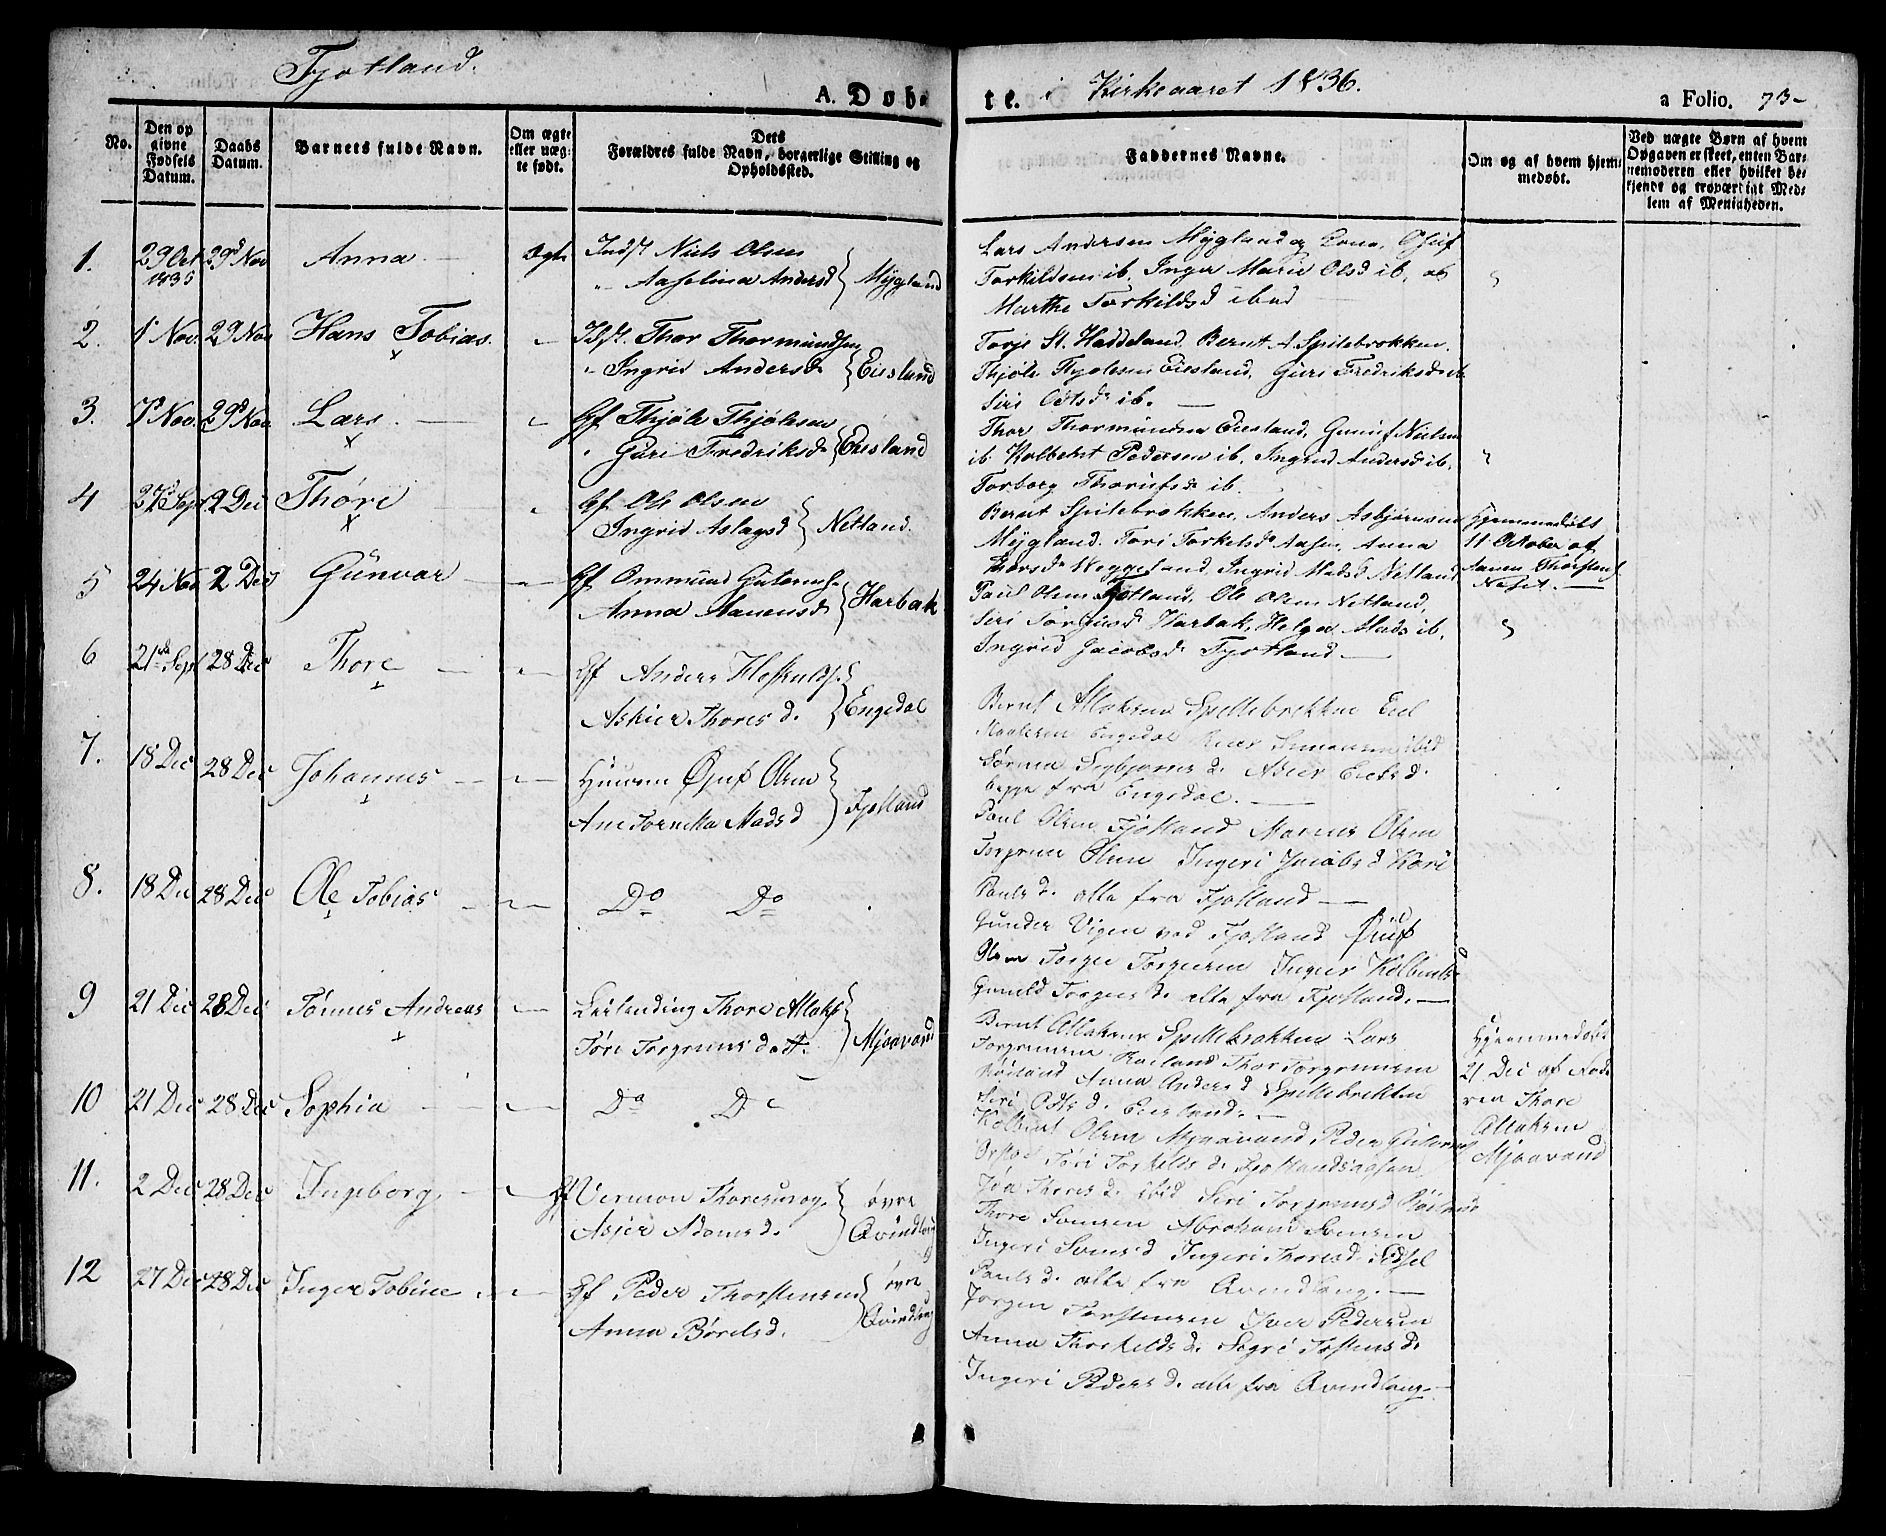 Fjotland.
A. Døb-
te. i Kirkeaaret 1836.
a Folio. 73-
No.
Den op
givne
Fødsels
Datum.
Daabs
Datum.
Barnets fulde Navn.
Om ægte
eller uæg-
te født.
Dets
Forældres fulde Navn, borgerlige Stilling og
Opholdssted.
Faddernes Navne.
Om og af hvem hjem-
medøbt.
Ved uægte Børn af hvem
Opgaven er skeet, enten Bar-
nemoderen eller hvilket be-
kjendt og troværdigt Med-
lem af Menigheden.
1. 29 Oct 29 Nov Anna Ægte Indst Niels Olsen
1835 Aaselina Andersd Mygland
Lars Andersen Mygland og Osuf
Torkildsen ib. Inger Marie Olsd ib, og
Marthe Torkildsd ibid
2. 1 Nov. 29 Nov Hans Tobias. Indst. Thor Thormundsen
Ingrid Andersd Eiesland
Torje St. Haddeland. Bernt A Spilebrokken.
Thjøle Thjølesen Eiesland, Guri Fredriksd ib
Siri Odtsd ib.
3. 7 Nov. 29 Nov Lars. Gf Thjøle Thjølesen
Guri Fredriksd Eiesland
Thor Thormundsen Eiesland, Gunuf Nielsen
ib. Kolbent Pedersen ib. Ingrid Andersd ib.
Torborg Thorufsd ib.
4 27 Sept 2 Dec Thøre Gf Ole Olsen
Ingrid Aslagsd Netland.
Bernt Spilebrokken, Anders Asbjørnsen
Mygland. Tori Torkelsd Aasen, Anna
Thorsd Weggeland, Ingrid Madsd Netland
Hjemmedøbt
11 October af
Thorstens
Neset.
5 24 Nov 2 Dec Gunvar Gf Ommund Gutormsen
Anna Aanensd Harbak
Paul Olsen Fjotland, Ole Olsen Netland,
Siri Torgusd Harbak, Helga Mads ib.
Ingrid Jacobsd Fjotland
6 21 Sept 28 Dec Thore Gf Anders Hoskulds.
Askier Thoresd. Engedal
Bernt Atlaksen Spillebrekken Eiel
Engedal Simonsen ibid
Sørine Sigbjørnsd. Asier Eielsd.
begge fra Engedal.
7. 18 Dec 28 Dec Johannes Huusm Øsuf Olsen
Ane Tornika Madsd Fjotland
Paul Olsen Fjotland Olsen
Torgrim Olsen Ingeri Jacobsd Kari
Paulsd. alle fra Fjotland
8. 18 Dec 28 Dec Ole Tobias Do Do
Gunder Vigen ved Fjotland Øsuf
Olsen Torger Torgersen Inger Kolbents
Gunild Torgersd. alle fra Fjotland.
9 21 Dec 28 Dec Tønnes Andreas Leilending Thore Atlaks
Tøri Torgrimsdatt. Mjaavand
Bernt Atlaksen Spillebrekken Lars
Torgrimsen Røiland Thor Torgrimsen
Røiland Anna Andersd Spillebrekken
Siri Odtsd. Eiesland.
Hjemmedøbt
21 Dec af Fade
ren Thore
Atlaksen
Mjaavand
10 21 Dec 28 Dec Sophia Do Do
Kolbent Olsen Mjaavand Peder Gutorms
Tøri Torkelsd. Fjotlandsaasen
Thoresd. ibid Siri Torgrimsd Røiland
11. 2 Dec 28 Dec Ingeborg Gf Vermon Thoresen og
Asjer Adamsd. øvre Qvindlog
Thore Svensen Abraham Svensen
Ingeri Svensd Ingeri Thoresd. Edsel
Paulsd. alle fra Qvindlong.
12 27 Dec 28 Dec Inger Tobine Gf Peder Thorstensen
Anna Børelsd. øvre Qvindlog
Jørgen Torstensen Iver Pedersen
Anna Thorkelds d. Segri Tostensd.
Ingeri Pedersd. alle fra Qvindlong